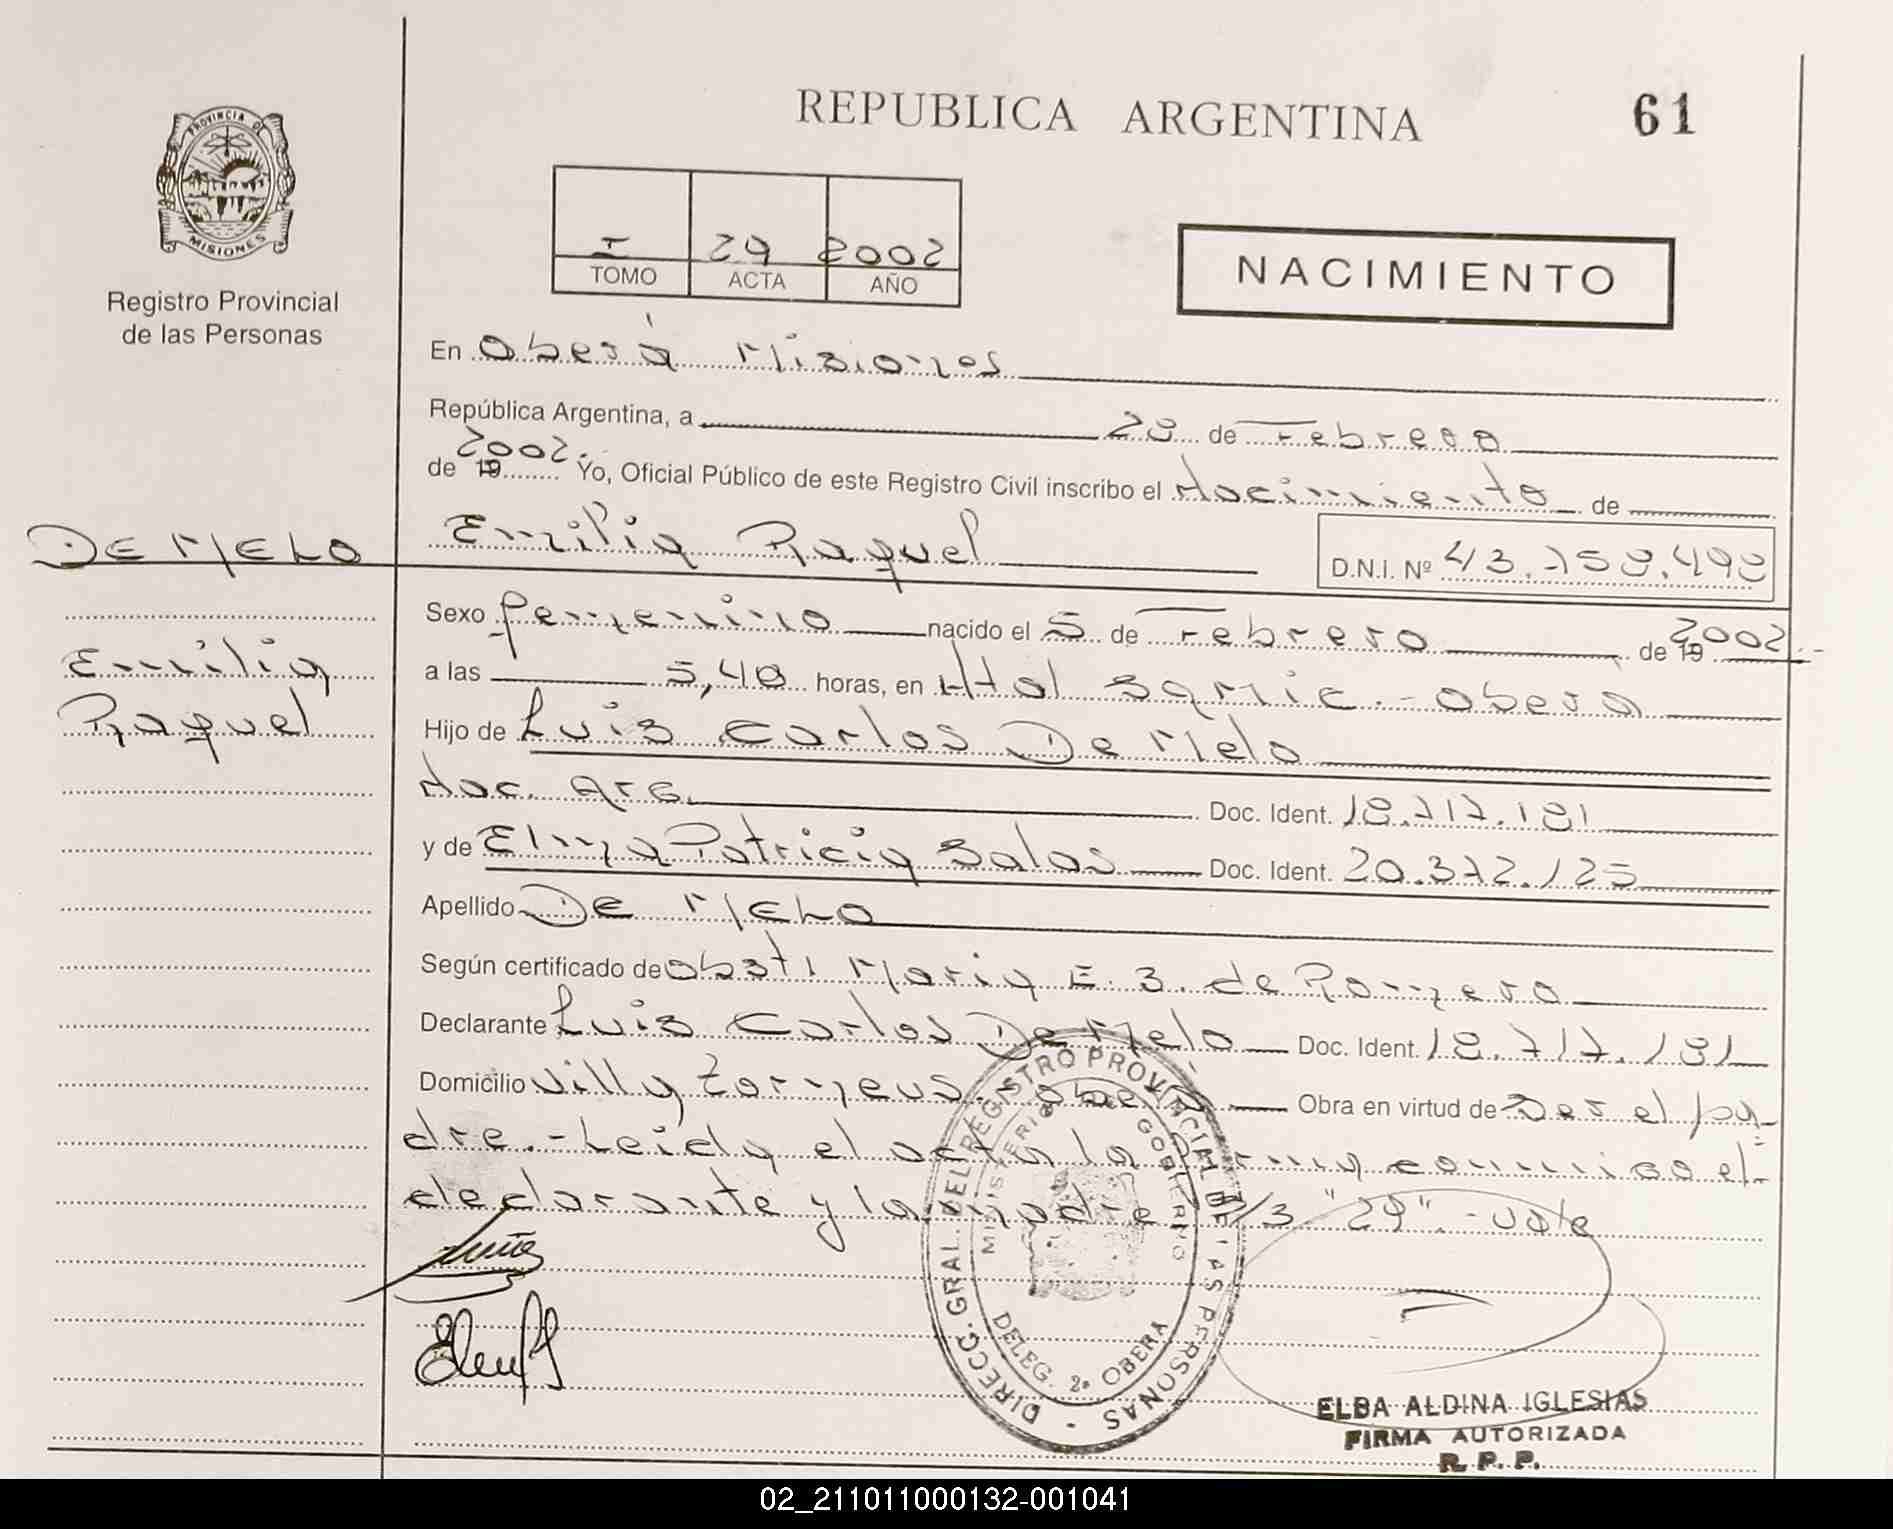 REPUBLICA ARGENTINA
61
PROVINCIA DE
MISIONES
Registro Provincial
de las Personas
I 29 2002
TOMO ACTA AÑO
NACIMIENTO
En Oberá Misiones
República Argentina, a 28 de Febrero
de 19 2002. Yo, Oficial Público de este Registro Civil inscribo el Nacimiento de
DE MELO
Emilia Raquel
D.N.I. Nº 43.758.498
Sexo femenino nacido el 5 de Febrero de 19 2002
Emilia
Raquel
a las 5,40 horas, en Htal Samic.- Oberá
Hijo de Luis Carlos De Melo
Nac. Arg. Doc. Ident. 18.717.181
y de Elma Patricia Salas Doc. Ident. 20.372.125
Apellido DE MELO
Según certificado de Obst. Maria E. S. de Romero
Declarante Luis Carlos De Melo Doc. Ident. 18.717.181
Domicilio Villa Obera Obra en virtud de ser el pa-
dre.- Leida el acta la firma conmigo el
declarante y la madre "29".- vale
DIRECC. GRAL. DEL REGISTRO PROVINCIAL DE LAS PERSONAS
MINISTERIO GOBIERNO
DELEG. 2ª OBERA
ELBA ALDINA IGLESIAS
FIRMA AUTORIZADA
R. P. P.
02_211011000132-001041